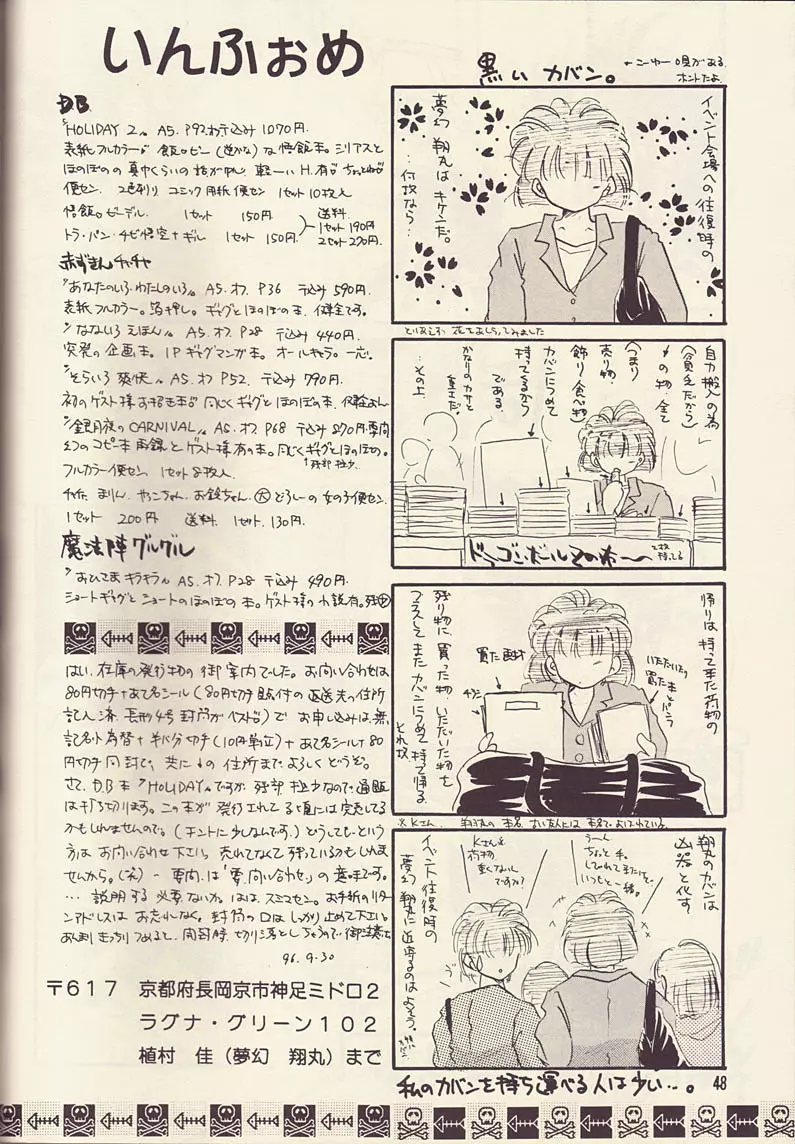 いんふぉめ
D.B.
"HOLIDAY 2" A5. P92. わ 〒込み 1070円.
表紙フルカラー。飯のピー(逆かな)な悟飯本。シリアスと
便セン. 2色刷り コミック用紙便セン 1セット10枚入
悟飯。ビーデル. 1セット 150円.
トラ・パン・チビ悟空+ギル 1セット 150円.
送料.
1セット190円
2セット270円.
赤ずきんチャチャ
"あなたのいろ わたしのいろ" A5. オフ. P36 〒込み 590円.
表紙フルカラー。箔押し。ギャグとほのぼの本. 健全です。
"なないろ えほん" A5. オフ. P28 〒込み 440円.
突発の企画本。1PギャグマンガA本。オールキャラ。一応。
"そらいろ 爽快" A5. オフ P52. 〒込み 790円.
初のゲスト様お招き本。同じくギャグとほのぼの本.
"銀月夜のCARNIVAL" A5. オフ P68 〒込み 870円. 要問
幻のコピー本再録とゲスト様有の本。同じくギャグとほのぼの。
残部極少.
フルカラー便セン. 1セット8枚入.
チャチャ まりん. ヤッコちゃん. お鈴ちゃん. 大 どろしーの 女の子便セン.
1セット 200円 送料. 1セット. 130円.
魔法陣グルグル
"おひさま キラキラ" A5. オフ. P28 〒込み 490円.
ショートギャグと ショートのほのぼの本。ゲスト様の小説有。残中
はい. 在庫の発行物の御案内でした。お問い合わせは
80円切手+あて名シール(80円切手貼付の返送先の住所
記入済. 長形4号封筒がベスト)で お申し込みは. 無
記名小為替+半パ分切手(10円単位)+あて名シール+80
円切手同封で、共に↓の住所まで. よろしくどうぞ。
さて. D.B本 "HOLIDAY" ですが 残部極少なので. 通販
は打ち切ります。この本が発行されてる頃には完売してる
かもしれませんので。(ホントに少しなんです.) どうしても・という
方は. お問い合わせ下さい。売れてなくて残っているかもしれま
せんから。(笑) - 要問.は「要・問い合わせ」の意味です。
…説明する必要ないか。はは. スミマセン. お手紙のリター
ンアドレスは お忘れなく。封筒の口は しっかり止めて下さい。
96. 9. 30
〒617 京都府長岡京市神足ミドロ2
ラグナ・グリーン102
植村 佳(夢幻 翔丸)まで
黒い カバン。
ホントだよ.
イベント会場への往復時の
夢幻 翔丸は キケンだ。
…何故なら…
とりあえず 花でもちらしてみました
自力搬入の為
(貧乏だから)
↓の物. 全て
(つまり
売り物
飾り 食べ物)
カバンにつめて
持ってくるから
である.
かなりのカサと
重さだ。
…その上.
ドラゴンボールその本〜
帰りは 持って来た荷物の
残り物に. 買った物. いただいた物を
プラスして またカバンにつめて 持って帰る.
それ故.
買った画材
チラシ
いただいたり
買った本とパンフ
翔丸のカバンは
凶器と化す
うーん
ちょっと 手.
しびれてきたけど.
いつもと一緒。
Kさん
荷物.
重くないん
ですか?
イベント往復時の
夢幻 翔丸に 近寄るのはよそう。
私のカバンを持ち運べる人は少い…。
48